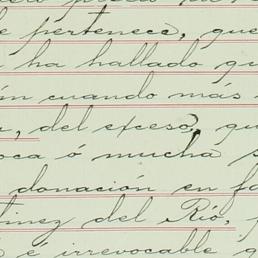 e pertenece, que
ha hallado qu
ún cuando más
r, del exceso, qu
oca ó mucha s
donación en fa
tinez del Río,
é irrevocable q